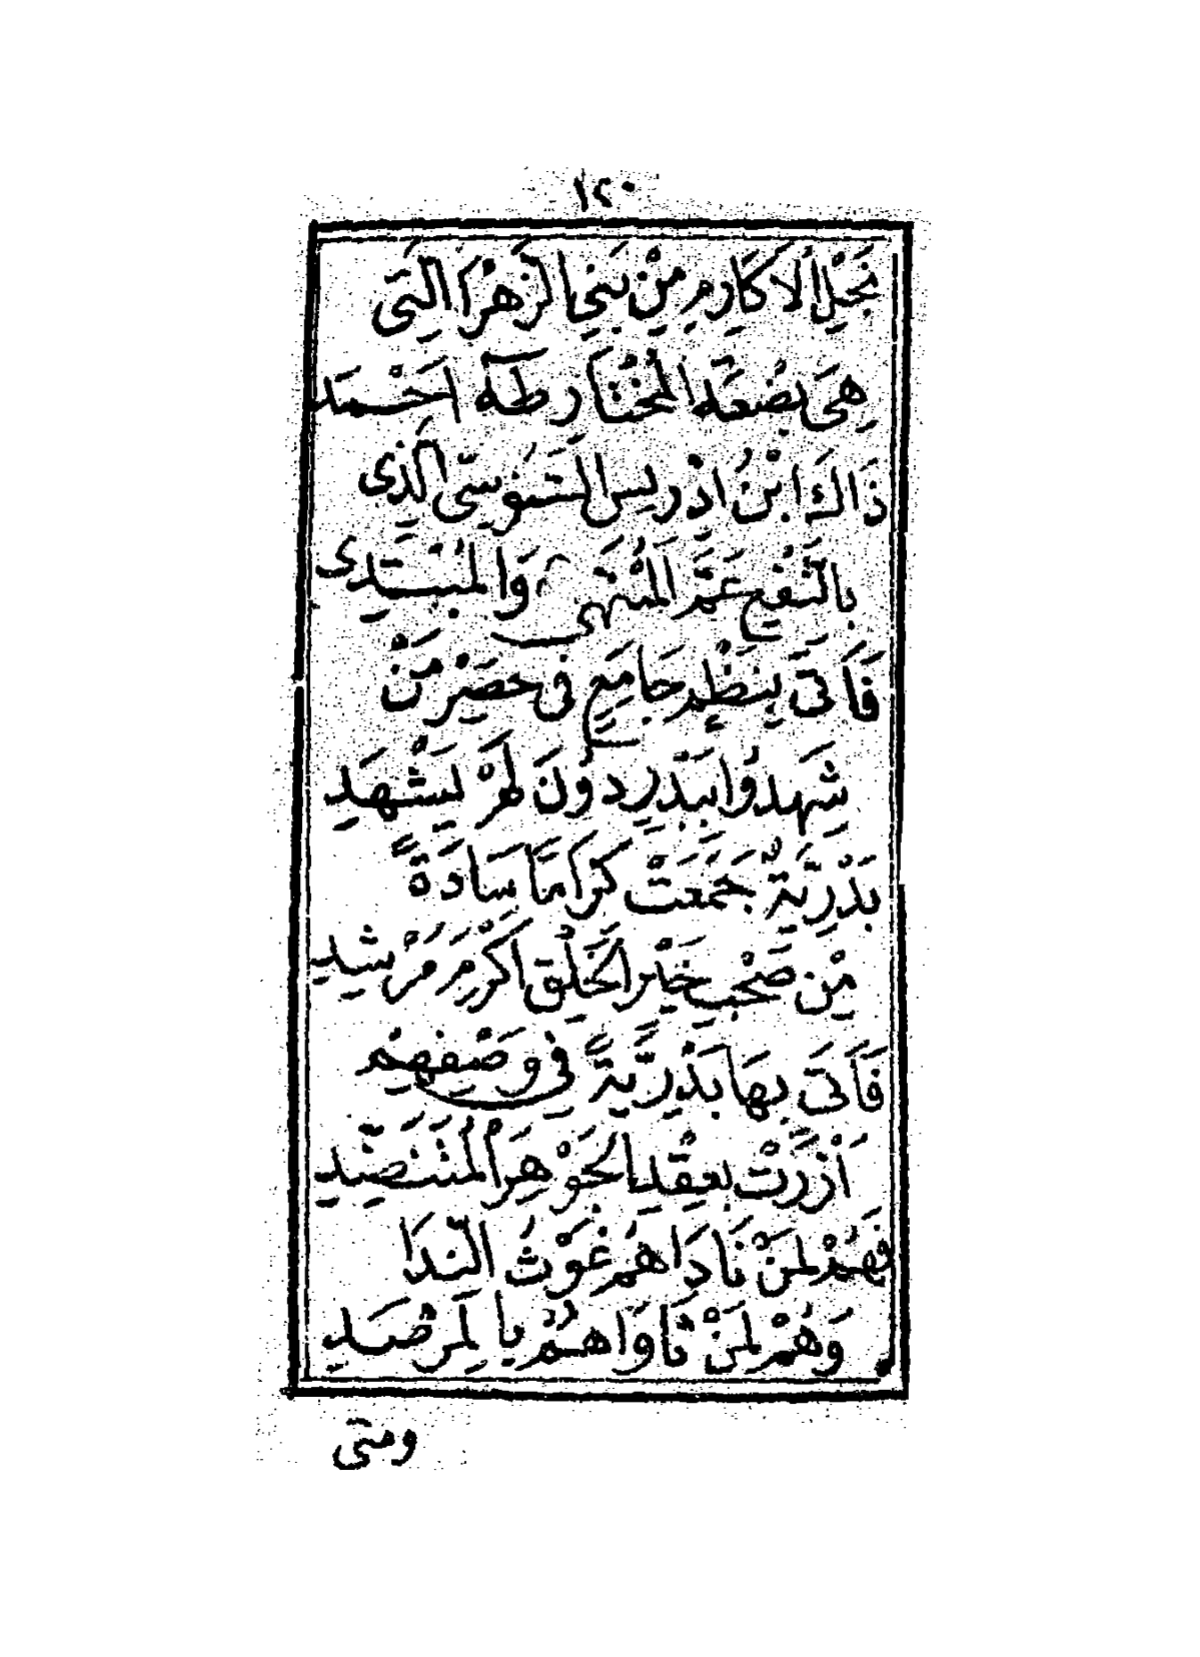 ١٢٠
نَجْلِ الْاَكَارِمِ مِنْ بَنِى الزَّهْرَا الَّتِى
هِىَ بِضْعَةُ الْمُخْتَارِ طٰهَ اَحْمَدِ
ذَاكَ ابْنُ اِدْرِيسَ السَّنُوسِىُّ الَّذِى
بِالنَّفْعِ عَمَّ الْمُنْتَهِى وَالْمُبْتَدِى
فَاَتَى بِنَظْمٍ جَامِعٍ فِى حَصْرِ مَنْ
شَهِدُوا بِبَدْرٍ دُونَ لَمْ يَشْهَدِ
بَدْرِيَّةٌ جَمَعَتْ كِرَامًا سَادَةً
مِنْ صَحْبِ خَيْرِ الْخَلْقِ اَكْرَمِ مُرْشِدِ
فَاَتَى بِهَا بَدْرِيَّةً فِى وَصْفِهِمْ
اَزْرَتْ بِعِقْدِ الْجَوْهَرِ الْمُتَنَضِّدِ
فَهُمْ لِمَنْ نَادَاهُمْ غَوْثُ النِّدَا
وَهُمْ لِمَنْ نَاوَاهُمْ بِالْمَرْصَدِ
ومتى